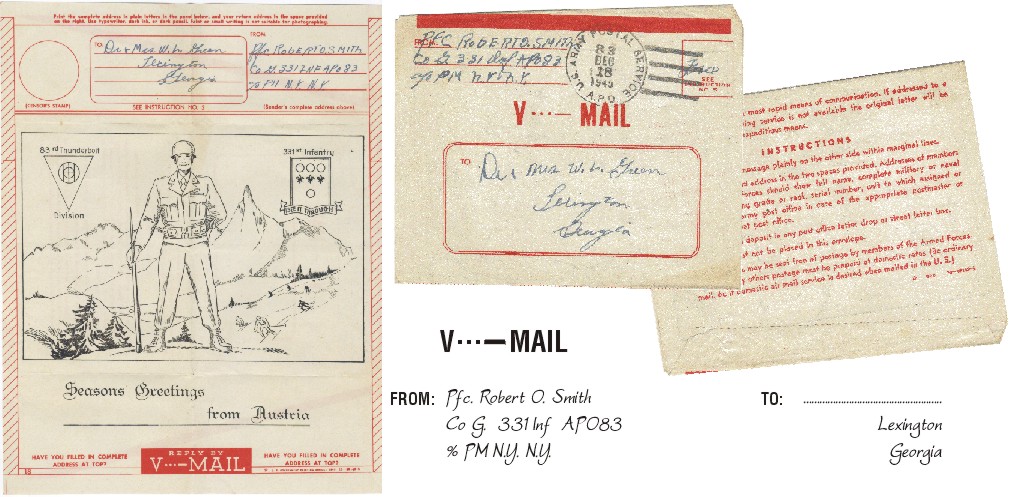 Print the complete address in plain letters in the panel below, and your return address in the space provided
on the right. Use typewriter, dark ink, or dark pencil. Faint or small writing is not suitable for photographing.
TO:
Dr & Mrs W. W. Green
Lexington
Georgia
FROM
Pfc ROBERT O. SMITH
Co G. 331 INF APO 83
c/o PM N.Y. N.Y
(CENSOR'S STAMP)
SEE INSTRUCTION NO. 2
(Sender's complete address above)
83rd Thunderbolt
Division
331st Infantry
Seasons Greetings
from Austria
HAVE YOU FILLED IN COMPLETE
ADDRESS AT TOP?
REPLY BY
V···—MAIL
HAVE YOU FILLED IN COMPLETE
ADDRESS AT TOP?
FROM
Pfc ROBERT O. SMITH
Co G 331 Inf APO 83
c/o PM N.Y. N.Y
U.S. ARMY POSTAL SERVICE
A.P.O.
83
DEC
18
1945
Free
SEE
INSTRUCTION
NO. 5
V···— MAIL
TO
Dr & Mrs W. W. Green
Lexington
Georgia
most rapid means of communication. If addressed to a
ing service is not available the original letter will be
expeditious means.
INSTRUCTIONS
message plainly on the other side within marginal lines.
d address in the two spaces provided. Addresses of members
orces should show full name, complete military or naval
ng grade or rank, serial number, unit to which assigned or
rmy post office in care of the appropriate postmaster or
et post office.
deposit in any post office letter drop or street letter box.
st not be placed in this envelope.
may be sent free of postage by members of the Armed Forces.
y others postage must be prepaid at domestic rates (3c ordinary
mail, 8c if domestic air mail service is desired when mailed in the U. S.)
V···—MAIL
FROM: Pfc. Robert O. Smith
Co G. 331 Inf APO83
% PM N.Y. N.Y.
TO: ..........................................
Lexington
Georgia